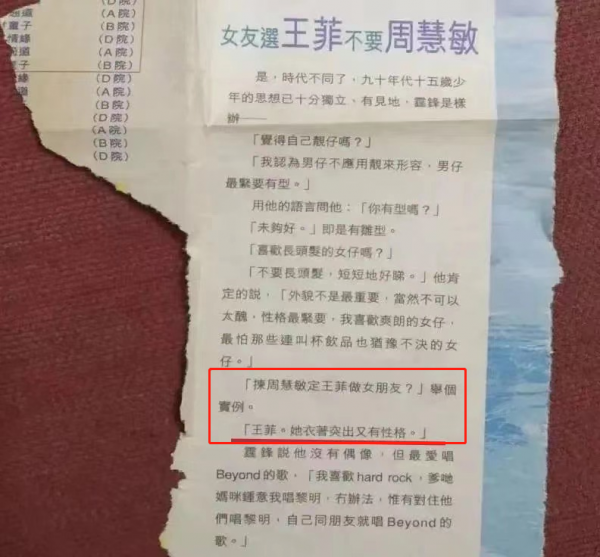 (D院)
(A院)
童子 (B院)
情緣 (D院)
(A院)
(B院)
(D院)
(A院)
(B院)
(D院)
(A院)
(B院)
(D院)
女友選王菲不要周慧敏
是,時代不同了,九十年代十五歲少
年的思想已十分獨立、有見地,霆鋒是樣
辦——
「覺得自己靚仔嗎?」
「我認為男仔不應用靚來形容,男仔
最緊要有型。」
用他的語言問他:「你有型嗎?」
「未夠好。」即是有雛型。
「喜歡長頭髮的女仔嗎?」
「不要長頭髮,短短地好睇。」他肯
定的說,「外貌不是最重要,當然不可以
太醜,性格最緊要,我喜歡爽朗的女仔,
最怕那些連叫杯飲品也猶豫不決的女
仔。」
「揀周慧敏定王菲做女朋友?」舉個
實例。
「王菲。她衣著突出又有性格。」
霆鋒說他沒有偶像,但最愛唱
Beyond的歌,「我喜歡hard rock,爹哋
媽咪鍾意我唱黎明,冇辦法,惟有對住他
們唱黎明,自己同朋友就唱Beyond的
歌。」